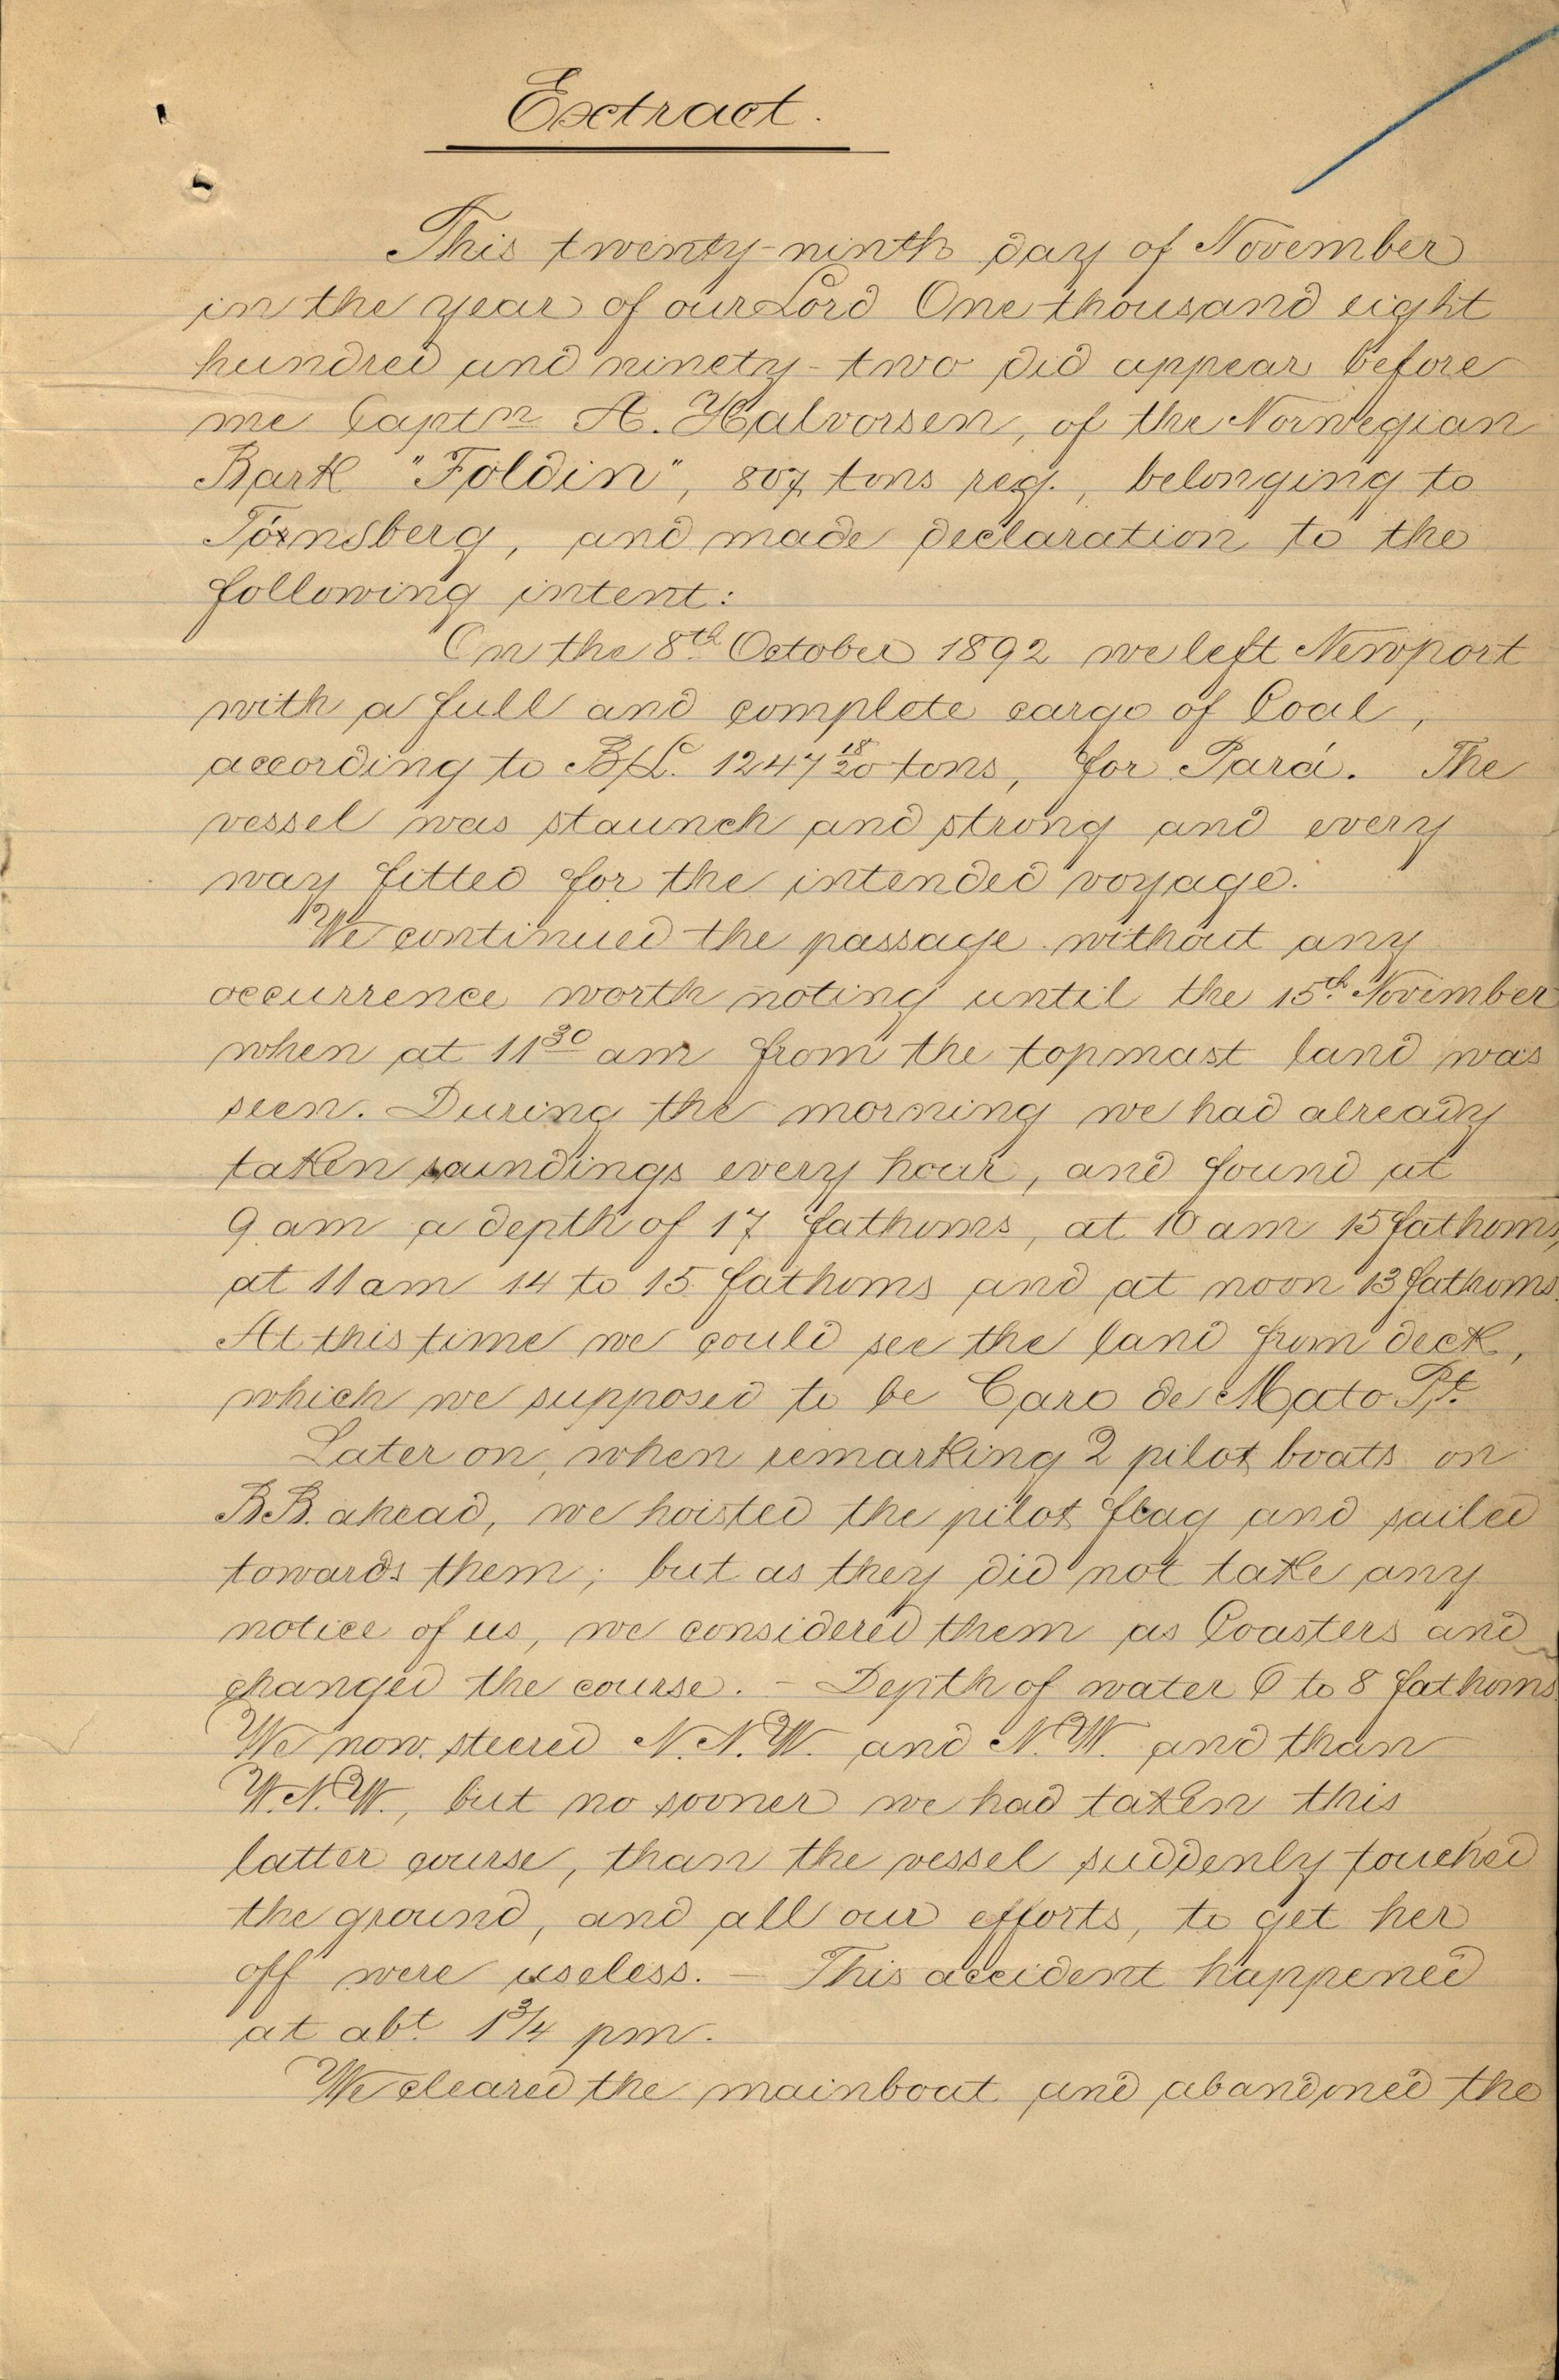 Exctract.
This twenty-ninth day of November
in the year of our Lord One thousand eight
hundred and ninety-two did appear before
me Captn A. Halvorsen, of the Norwegian
Bark "Foldin", 807 tons reg., belonging to
Törnsberg, and made declaration to the
following intent:
On the 8th October 1892 we left Newport
with a full and complete cargo of Coal,
according to B/L. 1247 18/20 tons, for Pará. The
vessel was staunch and strong and every
way fitted for the intended voyage.
We continued the passage without any
occurrence worth noting until the 15th November
when at 11 30 am from the topmast land was
seen. During the morning we had already
taken soundings every hour, and found at
9 am a depth of 17 fathoms, at 10 am 15 fathoms,
at 11 am 14 to 15 fathoms and at noon 13 fathoms.
At this time we could see the land from deck,
which we supposed to be Caro de Mato Pt.
Later on, when remarking 2 pilot boats on
B.B. ahead, we hoisted the pilot flag and sailed
towards them; but as they did not take any
notice of us, we considered them as Coasters and
changed the course. – Depth of water 6 to 8 fathoms
We now steered N.N.W. and N.W. and than
W.N.W., but no sooner we had taken this
latter course, than the vessel suddenly touched
the ground, and all our efforts, to get her
off were useless. – This accident happened
at abt 1 3/4 pm.
We cleared the mainboat and abandoned the